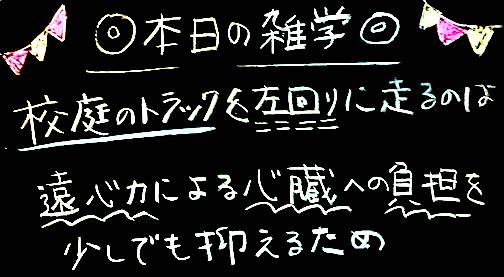 ◎本日の雑学◎
校庭のトラックを左回りに走るのは
遠心力による心臓への負担を
少しでも抑えるため